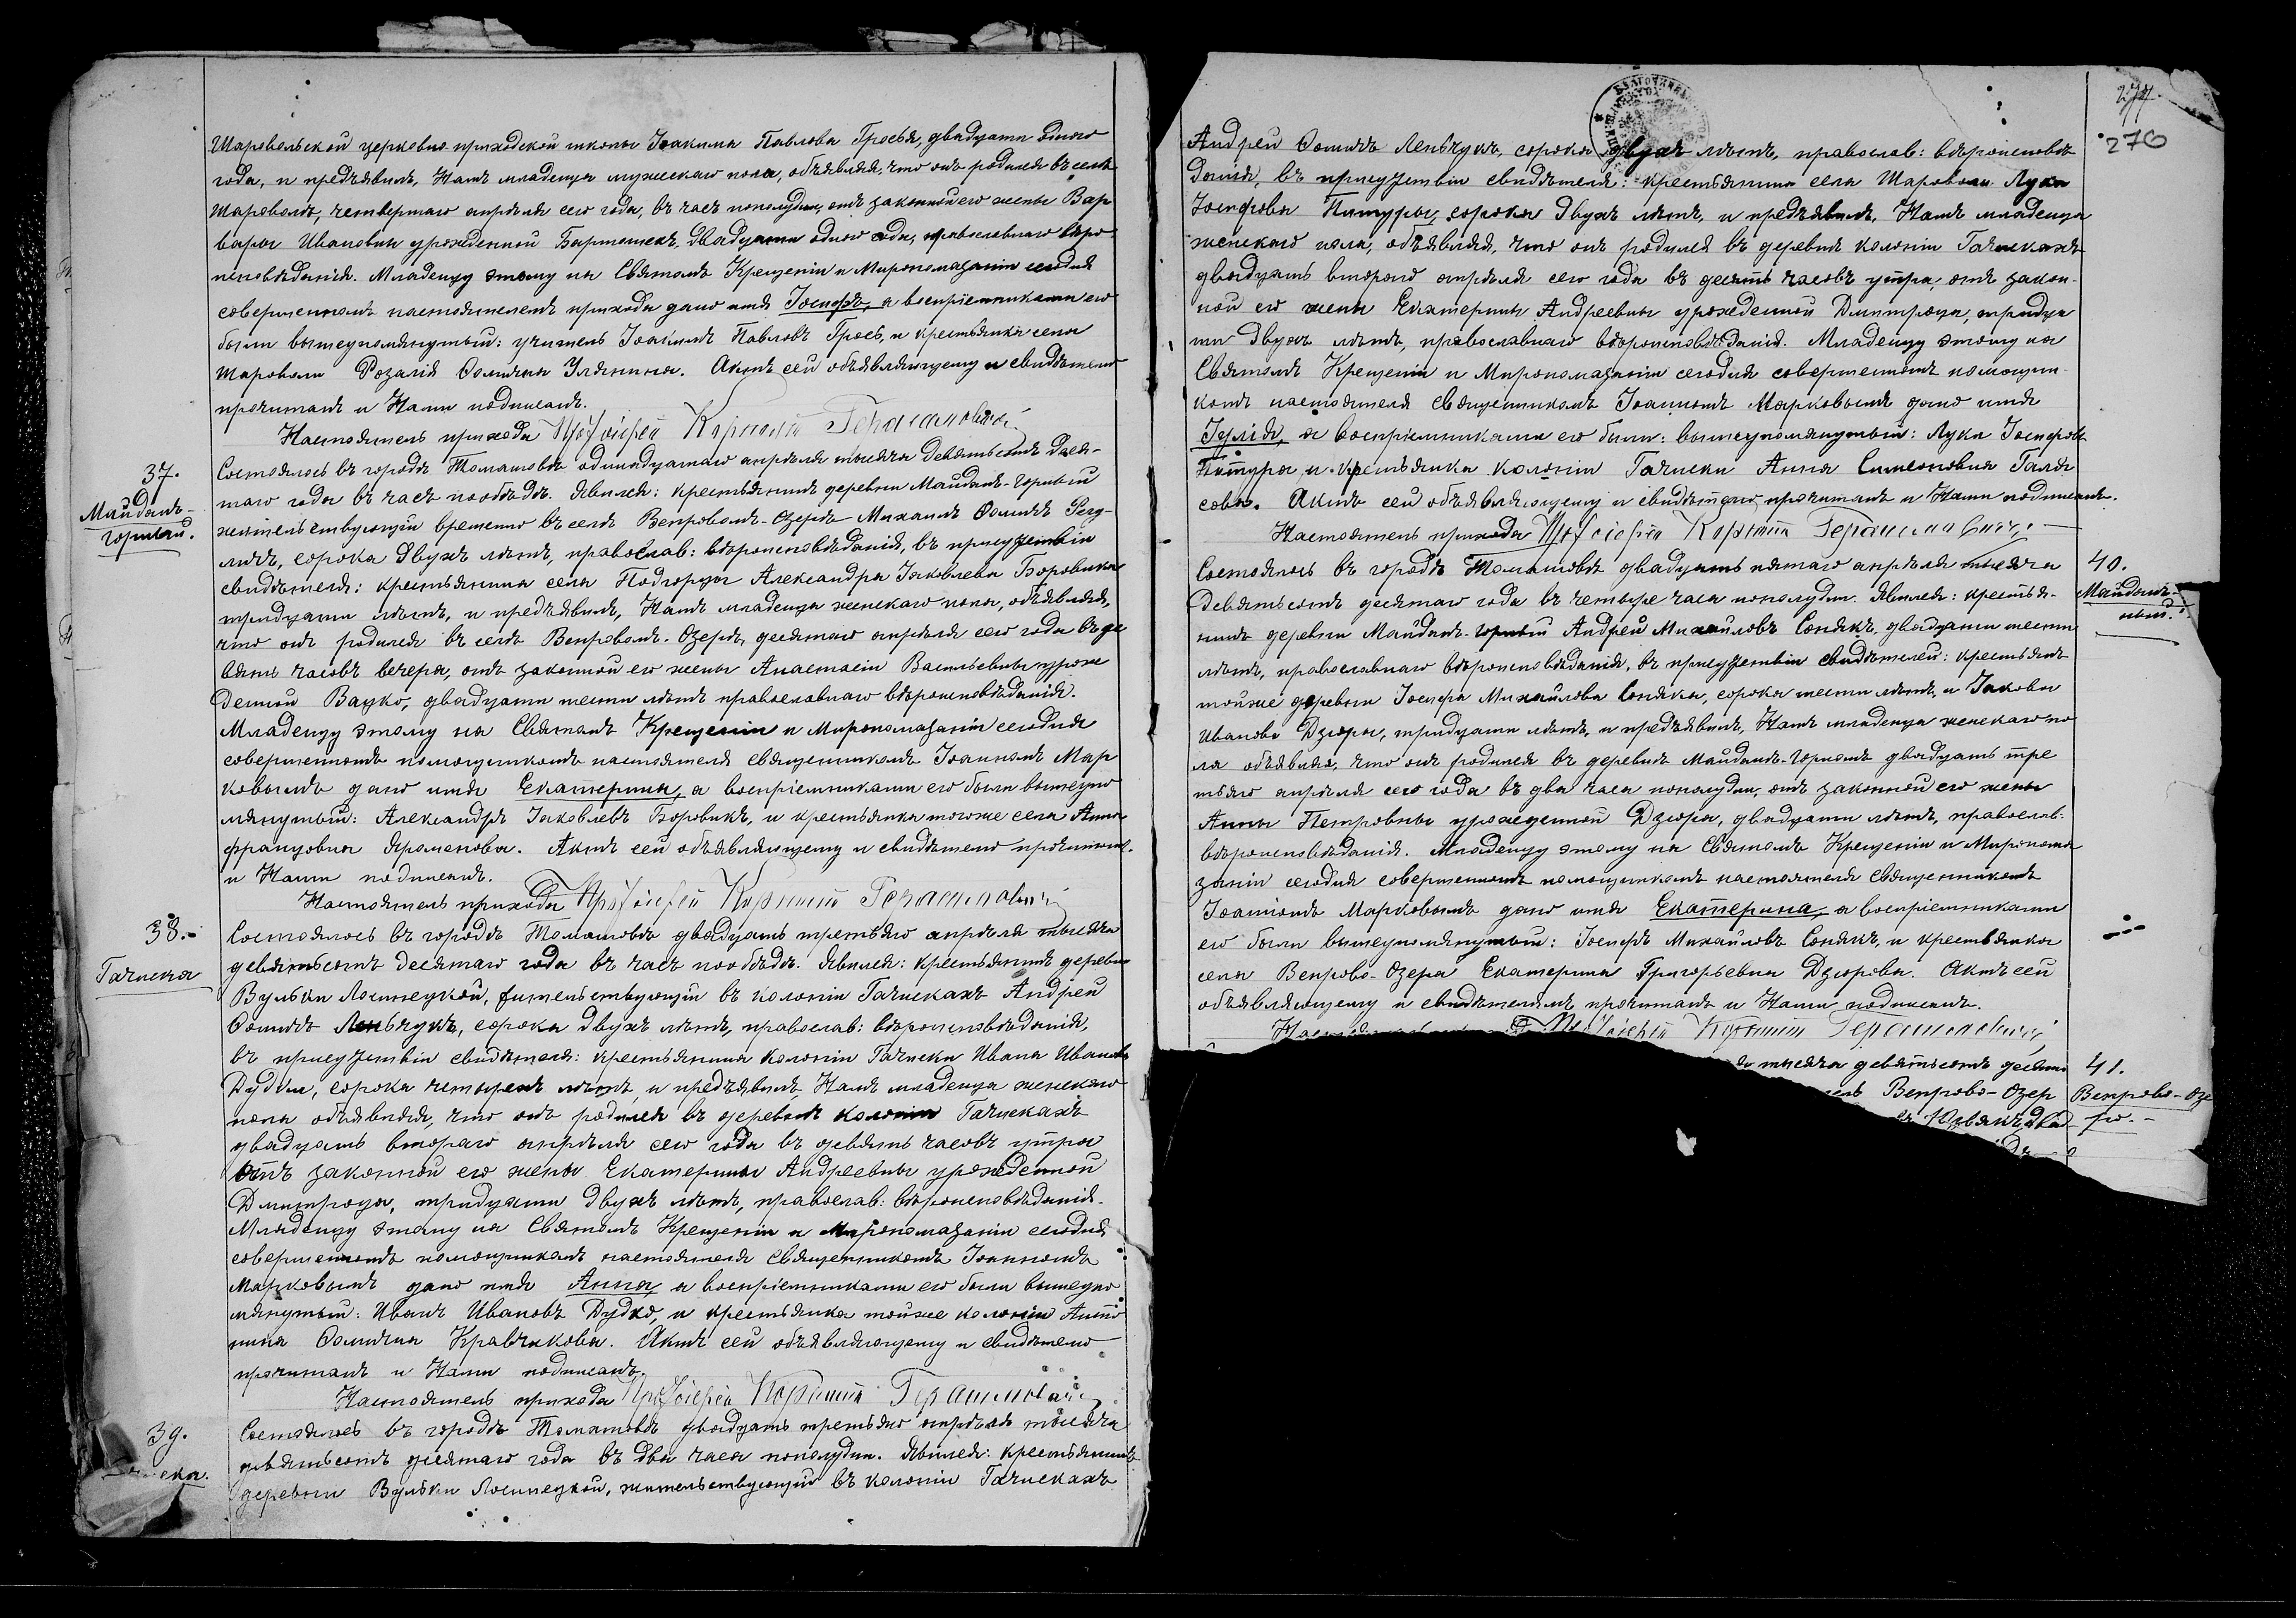 Шаровольской церковно-приходской школы Іоакима Павлова Гроевя, двадцати одного
года, и предъявилъ Намъ младенца мужескаго пола, объявляя, что онъ родился въ селѣ
Шароволѣ, четвертаго апрѣля сего года, въ часъ пополудни, отъ законной его жены Вар
вары Ивановны урожденной Бартошекъ, двадцати одного года, православнаго вѣро-
исповѣданія. Младенцу этому на Святомъ Крещеніи и Миропомазаніи сегодня
совершенномъ настоятелемъ прихода дано имя Іосифъ, а воспріемниками его
были вышеупомянутый: учитель Іоакимъ Павловъ Гроевъ, и крестьянка села
Шароволи Розалія Фомична Улянина. Актъ сей объявляющему и свидѣтелю
прочитанъ и Нами подписанъ.
Настоятель прихода Протоіерей Корнилій Герасимовичъ
37.
Майданъ-
горный.
Состоялось въ городѣ Томашовѣ одинадцатаго апрѣля тысяча девятьсотъ деся-
таго года въ часъ пообѣдѣ. Явился: крестьянинъ деревни Майданъ-Горный
жительствующій временно въ селѣ Вепровомъ-Озерѣ Михаилъ Фомичъ
сорока двухъ лѣтъ, православ: вѣроисповѣданія, въ присутствіи
свидѣтеля: крестьянина села Подгорцы Александра Іаковлева Боровика
тридцати лѣтъ, и предъявилъ, Намъ младенца женскаго пола, объявляя,
что онъ родился въ селѣ Вепровомъ-Озерѣ, десятаго апрѣля сего года въ де
вять часовъ вечера, отъ законной его жены Анастасіи Васильевны урож
денной Вацко, двадцати шести лѣтъ православнаго вѣроисповѣданія.
Младенцу этому на Святомъ Крещеніи и Миропомазаніи сегодня
совершенномъ помощникомъ настоятеля священникомъ Іоанномъ Мар
ковымъ дано имя Екатерина, а воспріемниками его были вышеупо
мянутый: Александръ Іаковлевъ Боровикъ, и крестьянка тогоже села Анна
Францовна Яроменова. Актъ сей объявляющему и свидѣтелю прочитанъ
и Нами подписанъ.
Настоятель прихода Протоіерей Корнилій Герасимовичъ
38.-
Гачиска
Состоялось въ городѣ Томашовѣ двадцать третьяго апрѣля тысяча
девятьсотъ десятаго года въ часъ пообѣдѣ. Явился: крестьянинъ деревни
Вульки Лосинецкой, жительствующій въ колоніи Гачискахъ Андрей
Фомичъ Леньчукъ, сорока двухъ лѣтъ, православ: вѣроисповѣданія,
въ присутствіи свидѣтеля: крестьянина колоніи Гачиски Ивана Иванова
Дудки, сорока четырехъ лѣтъ, и предъявилъ, Намъ младенца женскаго
пола объявляя, что онъ родился въ деревнѣ колоніи Гачискахъ
двадцать втораго апрѣля сего года въ девять часовъ утра
отъ законной его жены Екатерины Андреевны урожденной
Дмитроца, тридцати двухъ лѣтъ, православ: вѣроисповѣданія.
Младенцу этому на Святомъ Крещеніи и Миропомазаніи сегодня
совершенномъ помощникомъ настоятеля священникомъ Іоанномъ
Марковымъ дано имя Анна, а воспріемниками его были вышеупо
мянутый: Иванъ Ивановъ Дудко, и крестьянка тойже колоніи Анто
нина Фомична Кравчикова. Актъ сей объявляющему и свидѣтелю
прочитанъ и Нами подписанъ.
Настоятель прихода Протоіерей Корнилій Герасимовичъ
39.
иска.
Состоялось въ городѣ Томашовѣ двадцать третьяго апрѣля тысяча
девятьсотъ десятаго года въ два часа пополудни. Явился: крестьянинъ
деревни Вульки Лосинецкой, жительствующій въ колоніи Гачискахъ
276
Андрей Фомичъ Леньчукъ, сорока двухъ лѣтъ, православ: вѣроисповѣ
данія, въ присутствіи свидѣтеля: крестьянина села Шароволи Луки
Іосифова Питуры, сорока двухъ лѣтъ, и предъявилъ, Намъ младенца
женскаго пола, объявляя, что онъ родился въ деревнѣ колоніи Гачискахъ
двадцать второго апрѣля сего года въ десять часовъ утра, отъ закон-
ной его жены Екатерины Андреевны урожденной Дмитроца, тридца
ти двухъ лѣтъ, православнаго вѣроисповѣданія. Младенцу этому на
Святомъ Крещеніи и Миропомазаніи сегодня совершенномъ помощни-
комъ настоятеля священникомъ Іоанномъ Марковымъ дано имя
Іулія, а воспріемниками его были: вышеупомянутый: Лука Іосифовъ
Питура, и крестьянка колоніи Гачиски Анна Симеоновна Галя
сова. Актъ сей объявляющему и свидѣтелю прочитанъ и Нами подписанъ.
Настоятель прихода Протоіерей Корнилій Герасимовичъ
40.
Майданъ-
ный.
Состоялось въ городѣ Томашовѣ двадцать пятаго апрѣля тысяча
девятьсотъ десятаго года въ четыре часа пополудни. Явился: крестья-
нинъ деревни Майданъ-Горный Андрей Михайловъ Сонякъ, двадцати шести
лѣтъ, православнаго вѣроисповѣданія, въ присутствіи свидѣтелей: крестьянъ
тойже деревни Іосифа Михайлова Соняка, сорока шести лѣтъ, и Іакова
Иванова Дзюры, тридцати лѣтъ, и предъявилъ, Намъ младенца женскаго по
ла объявляя, что онъ родился въ деревнѣ Майданъ-Горномъ двадцать тре
тьяго апрѣля сего года въ два часа пополудни, отъ законной его жены
Анны Петровны урожденной Дзюра, двадцати лѣтъ, православ:
вѣроисповѣданія. Младенцу этому на Святомъ Крещеніи и Миропома
заніи сегодня совершенномъ помощникомъ настоятеля священникомъ
Іоанномъ Марковымъ дано имя Екатерина, а воспріемниками
его были вышеупомянутый: Іосифъ Михайловъ Сонякъ, и крестьянка
села Вепрово-Озера Екатерина Григорьевна Дзюрова. Актъ сей
объявляющему и свидѣтелямъ прочитанъ и Нами подписанъ.
Протоіерей Корнилій Герасимовичъ
41.
Вепрово-Озе
ро.-
тысяча девятьсотъ десята
Вепрово-Озер